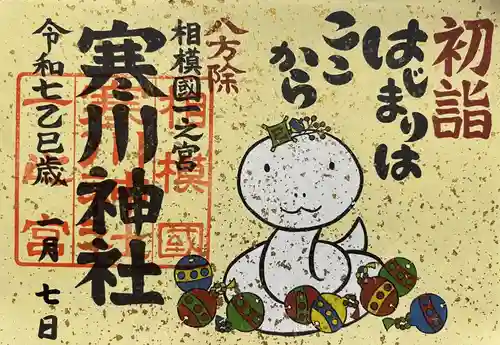 初詣
はじまりは
ここ
から
八方除
相模國一之宮
寒川神社
令和七乙巳歳 一月 七日
相模國
一之宮